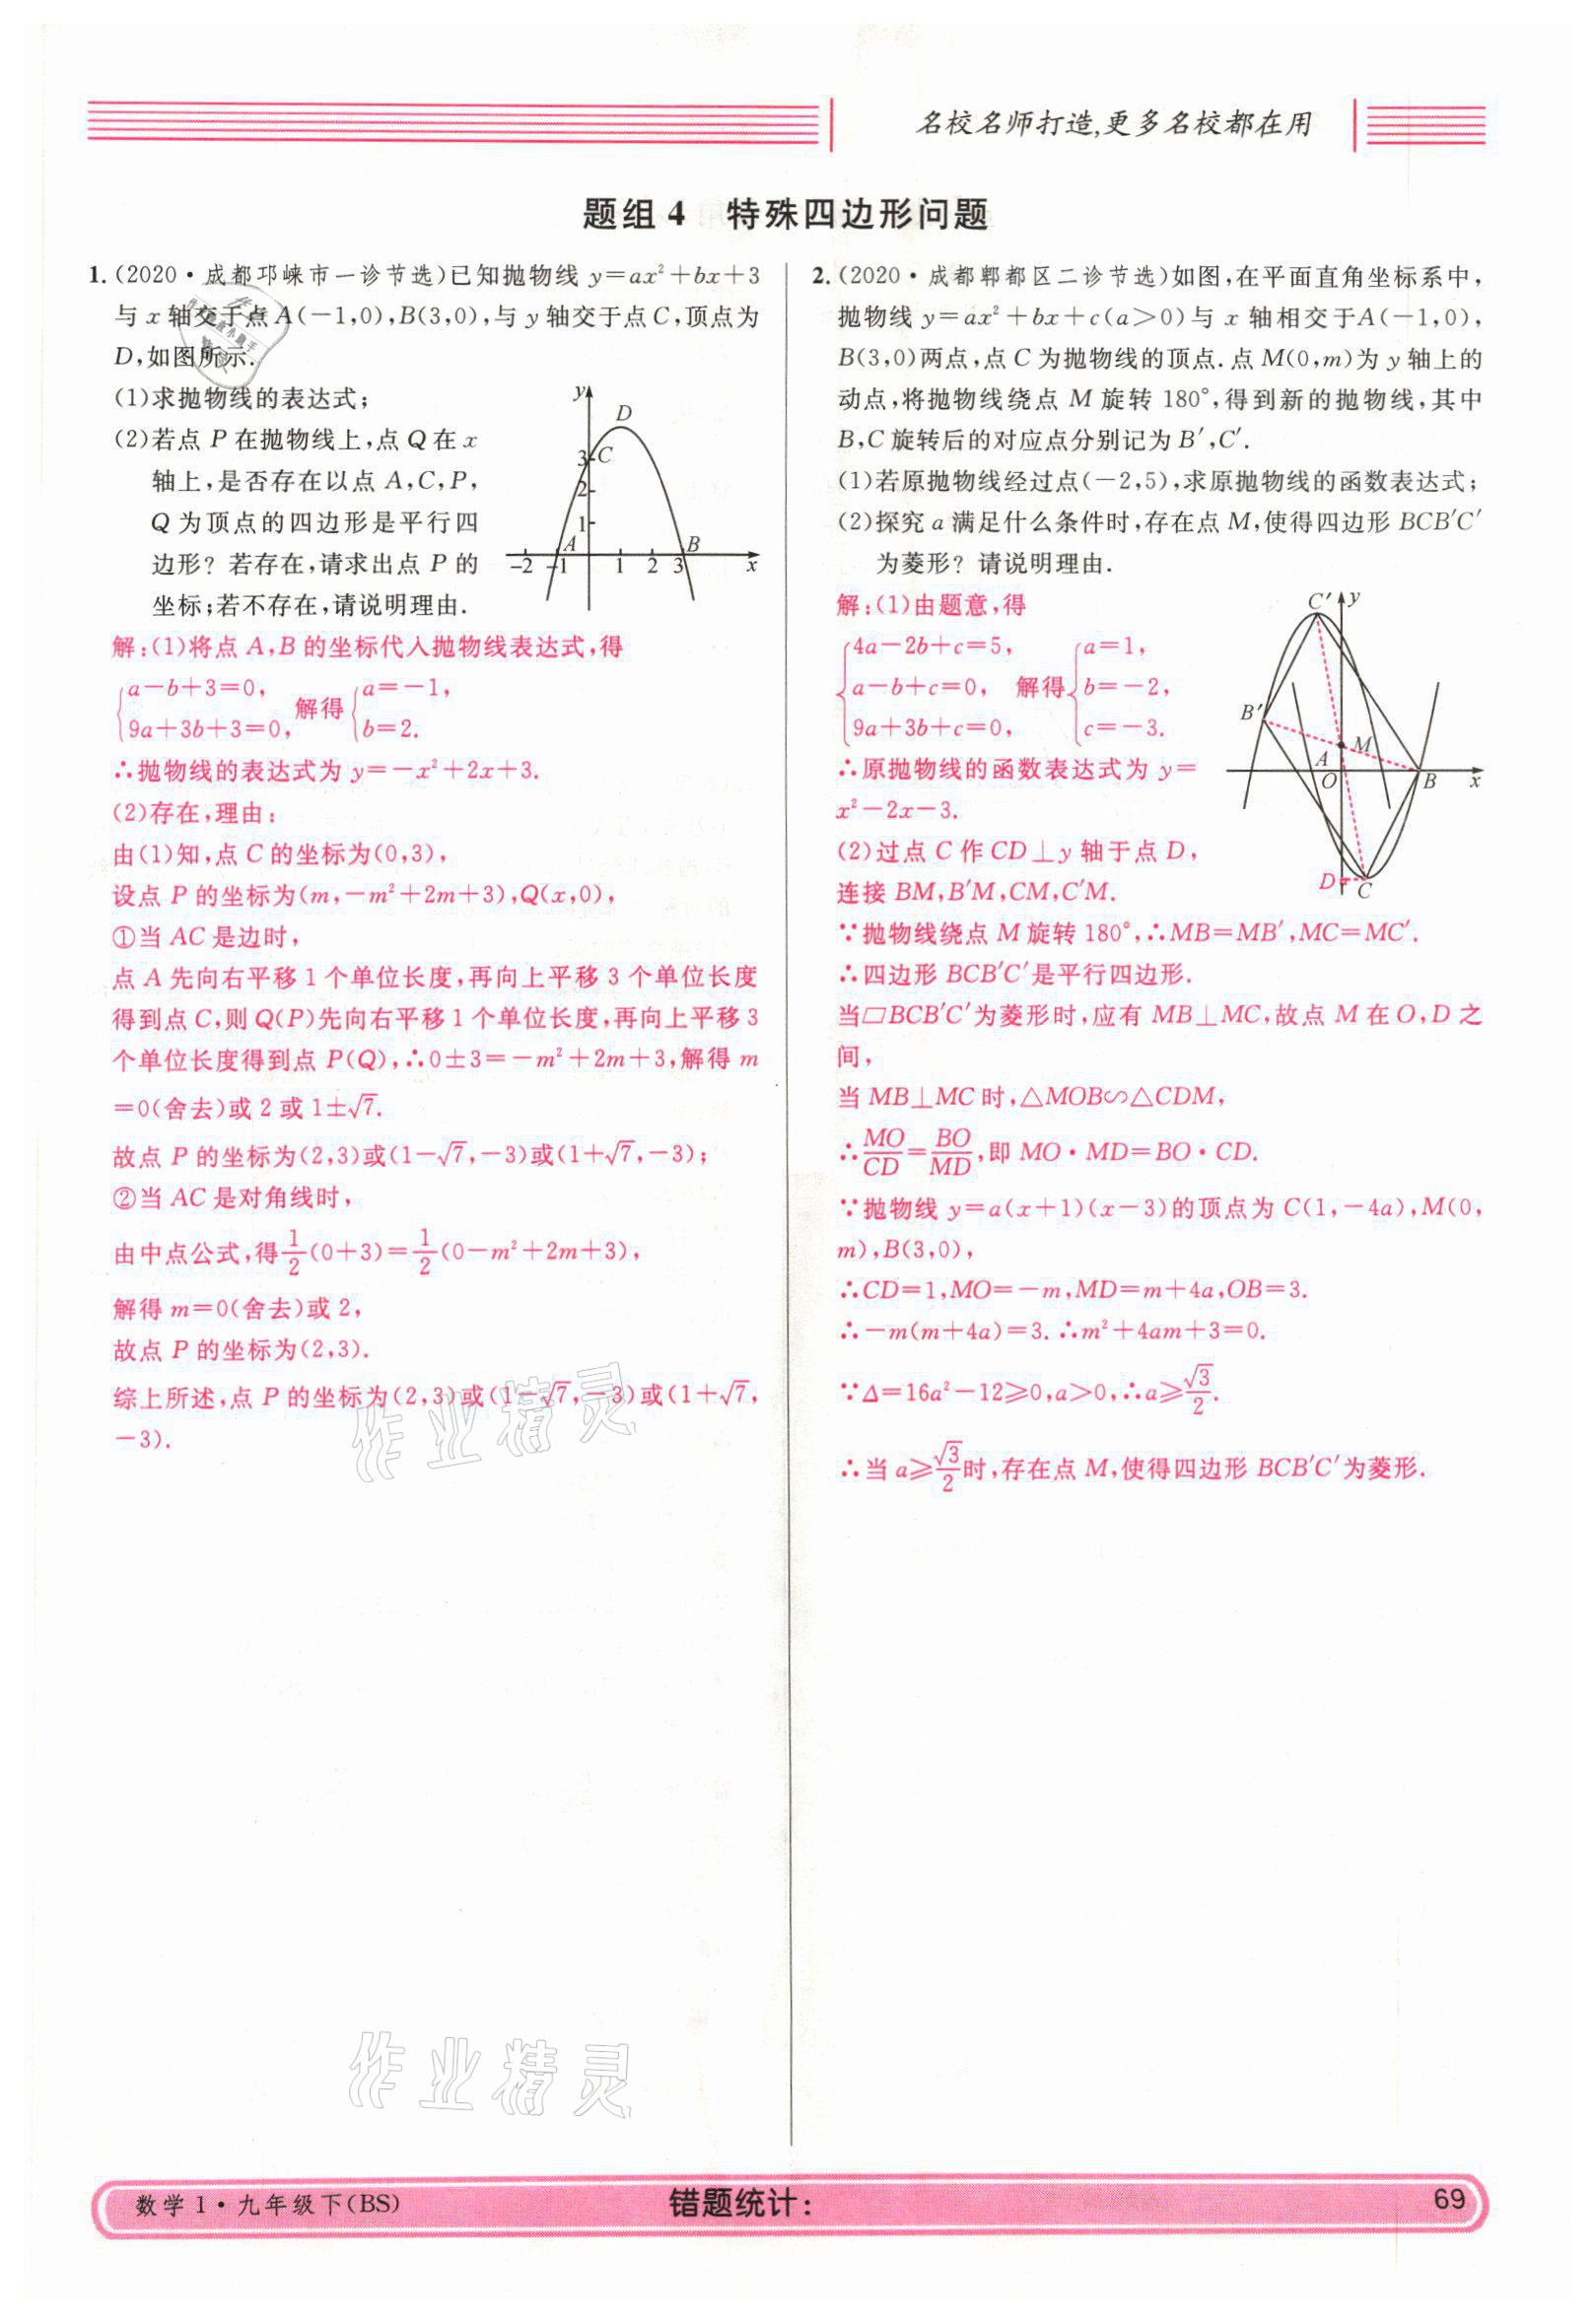 名校名师打造,更多名校都在用
题组4 特殊四边形问题
1.(2020·成都邛崃市一诊节选)已知抛物线 y=ax²+bx+3
与 x 轴交于点 A(-1,0),B(3,0),与 y 轴交于点 C,顶点为
D,如图所示.
(1)求抛物线的表达式;
(2)若点 P 在抛物线上,点 Q 在 x
轴上,是否存在以点 A,C,P,
Q 为顶点的四边形是平行四
边形? 若存在,请求出点 P 的
坐标;若不存在,请说明理由.
y
D
3
C
2
1
A
B
-2
-1
1
2
3
x
解:(1)将点 A,B 的坐标代入抛物线表达式,得
{a-b+3=0, 解得{a=-1,
9a+3b+3=0, b=2.
∴抛物线的表达式为 y=-x²+2x+3.
(2)存在,理由:
由(1)知,点 C 的坐标为(0,3),
设点 P 的坐标为(m,-m²+2m+3),Q(x,0),
①当 AC 是边时,
点 A 先向右平移 1 个单位长度,再向上平移 3 个单位长度
得到点 C,则 Q(P)先向右平移 1 个单位长度,再向上平移 3
个单位长度得到点 P(Q),∴0±3=-m²+2m+3,解得 m
=0(舍去)或 2 或 1±√7.
故点 P 的坐标为(2,3)或(1-√7,-3)或(1+√7,-3);
②当 AC 是对角线时,
由中点公式,得1/2(0+3)=1/2(0-m²+2m+3),
解得 m=0(舍去)或 2,
故点 P 的坐标为(2,3).
综上所述,点 P 的坐标为(2,3)或(1-√7,-3)或(1+√7,
-3).
2.(2020·成都郫都区二诊节选)如图,在平面直角坐标系中,
抛物线 y=ax²+bx+c(a>0)与 x 轴相交于A(-1,0),
B(3,0)两点,点 C 为抛物线的顶点.点 M(0,m)为 y 轴上的
动点,将抛物线绕点 M 旋转 180°,得到新的抛物线,其中
B,C 旋转后的对应点分别记为 B′,C′.
(1)若原抛物线经过点(-2,5),求原抛物线的函数表达式;
(2)探究 a 满足什么条件时,存在点 M,使得四边形 BCB′C′
为菱形? 请说明理由.
解:(1)由题意,得
{4a-2b+c=5, {a=1,
a-b+c=0, 解得 b=-2,
9a+3b+c=0, c=-3.
∴原抛物线的函数表达式为 y=
x²-2x-3.
(2)过点 C 作 CD⊥y 轴于点 D,
连接 BM,B′M,CM,C′M.
C′
y
B′
M
A
O
B
x
D
C
∵抛物线绕点 M 旋转 180°,∴MB=MB′,MC=MC′.
∴四边形 BCB′C′是平行四边形.
当▱BCB′C′为菱形时,应有 MB⊥MC,故点 M 在 O,D 之
间,
当 MB⊥MC 时,△MOB∽△CDM,
∴MO/CD=BO/MD,即 MO·MD=BO·CD.
∵抛物线 y=a(x+1)(x-3)的顶点为 C(1,-4a),M(0,
m),B(3,0),
∴CD=1,MO=-m,MD=m+4a,OB=3.
∴-m(m+4a)=3.∴m²+4am+3=0.
∵Δ=16a²-12≥0,a>0,∴a≥√3/2.
∴当 a≥√3/2时,存在点 M,使得四边形 BCB′C′为菱形.
作业精灵
作业精灵
数学1·九年级下(BS)
错题统计:
69